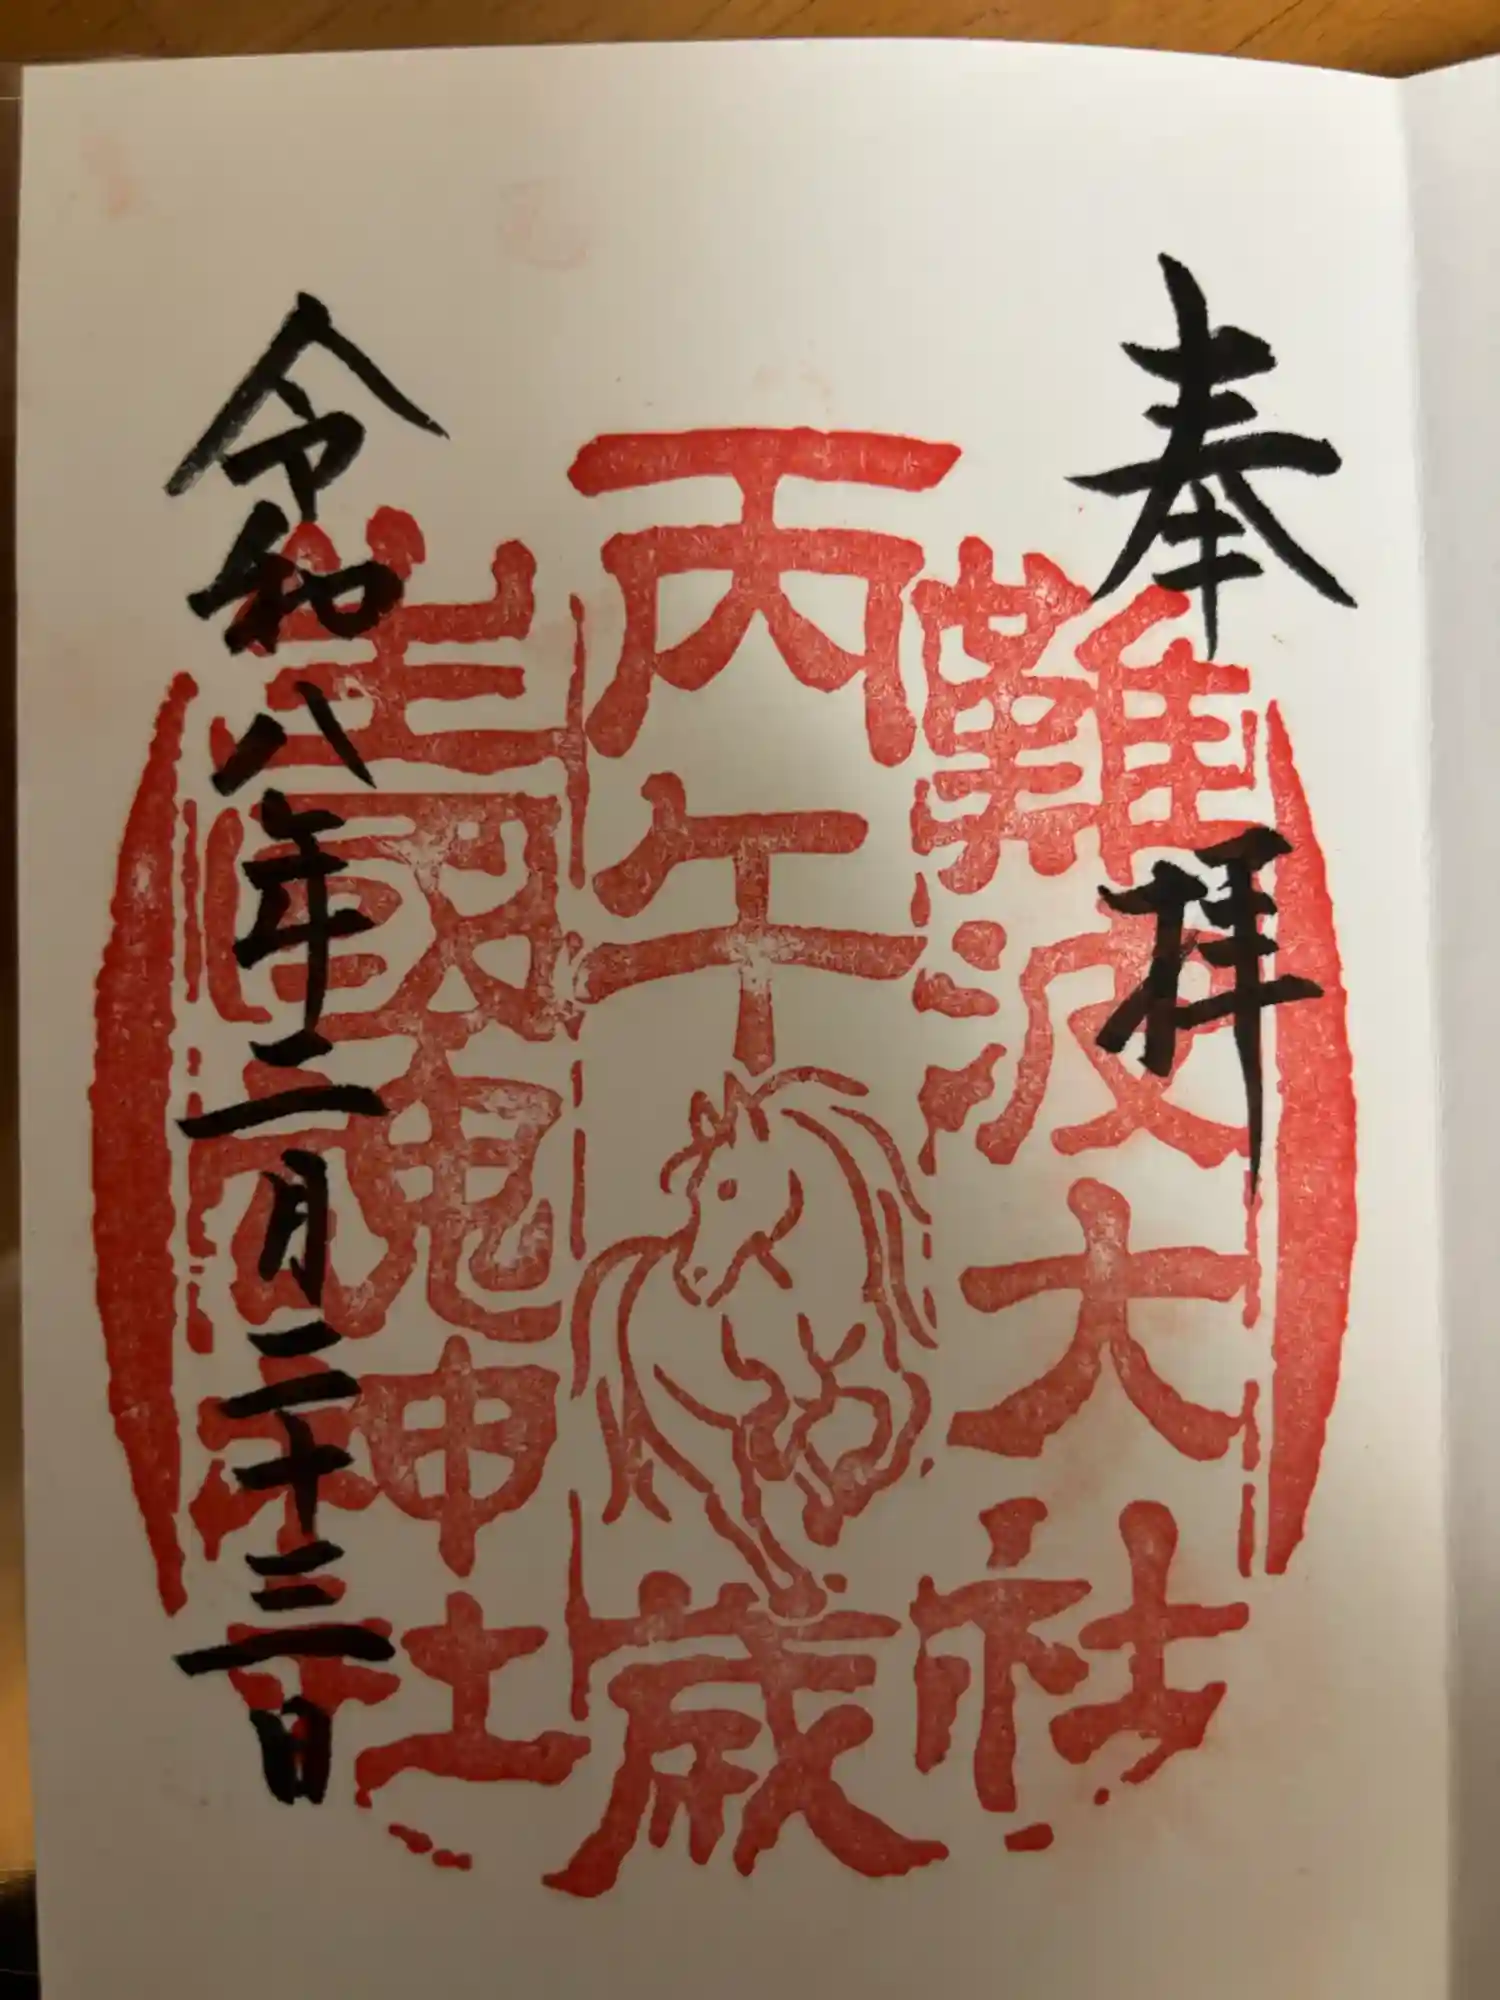 奉拝
難波大社
丙午歳
生國魂神社
令和八年二月二十三日